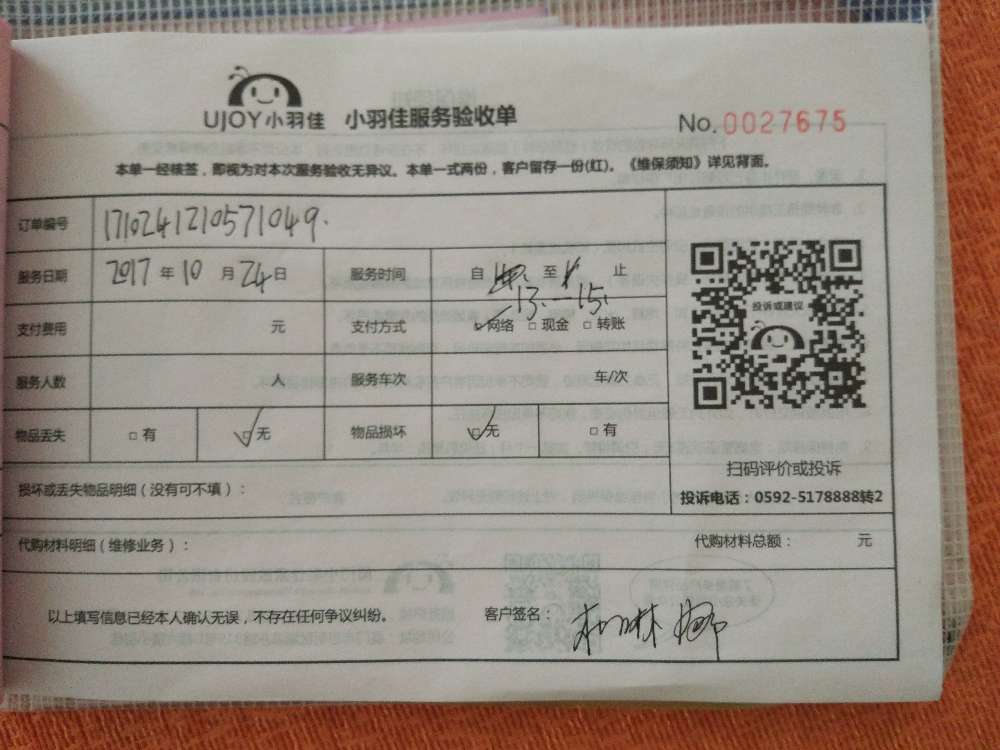 UJOY小羽佳 小羽佳服务验收单 No.0027675
本单一经核签，即视为对本次服务验收无异议。本单一式两份，客户留存一份(红)。《维保须知》详见背面。
订单编号 1710241210571049.
服务日期 2017 年 10 月 24 日 服务时间 自 至 止
13.—15.
支付费用 元 支付方式 网络 □ 现金 □ 转账
投诉或建议
服务人数 人 服务车次 车/次
物品丢失 □ 有 □ 无 物品损坏 □ 无 □ 有
扫码评价或投诉
损坏或丢失物品明细（没有可不填）：
投诉电话：0592-5178888转2
代购材料明细（维修业务）： 代购材料总额： 元
以上填写信息已经本人确认无误，不存在任何争议纠纷。 客户签名：